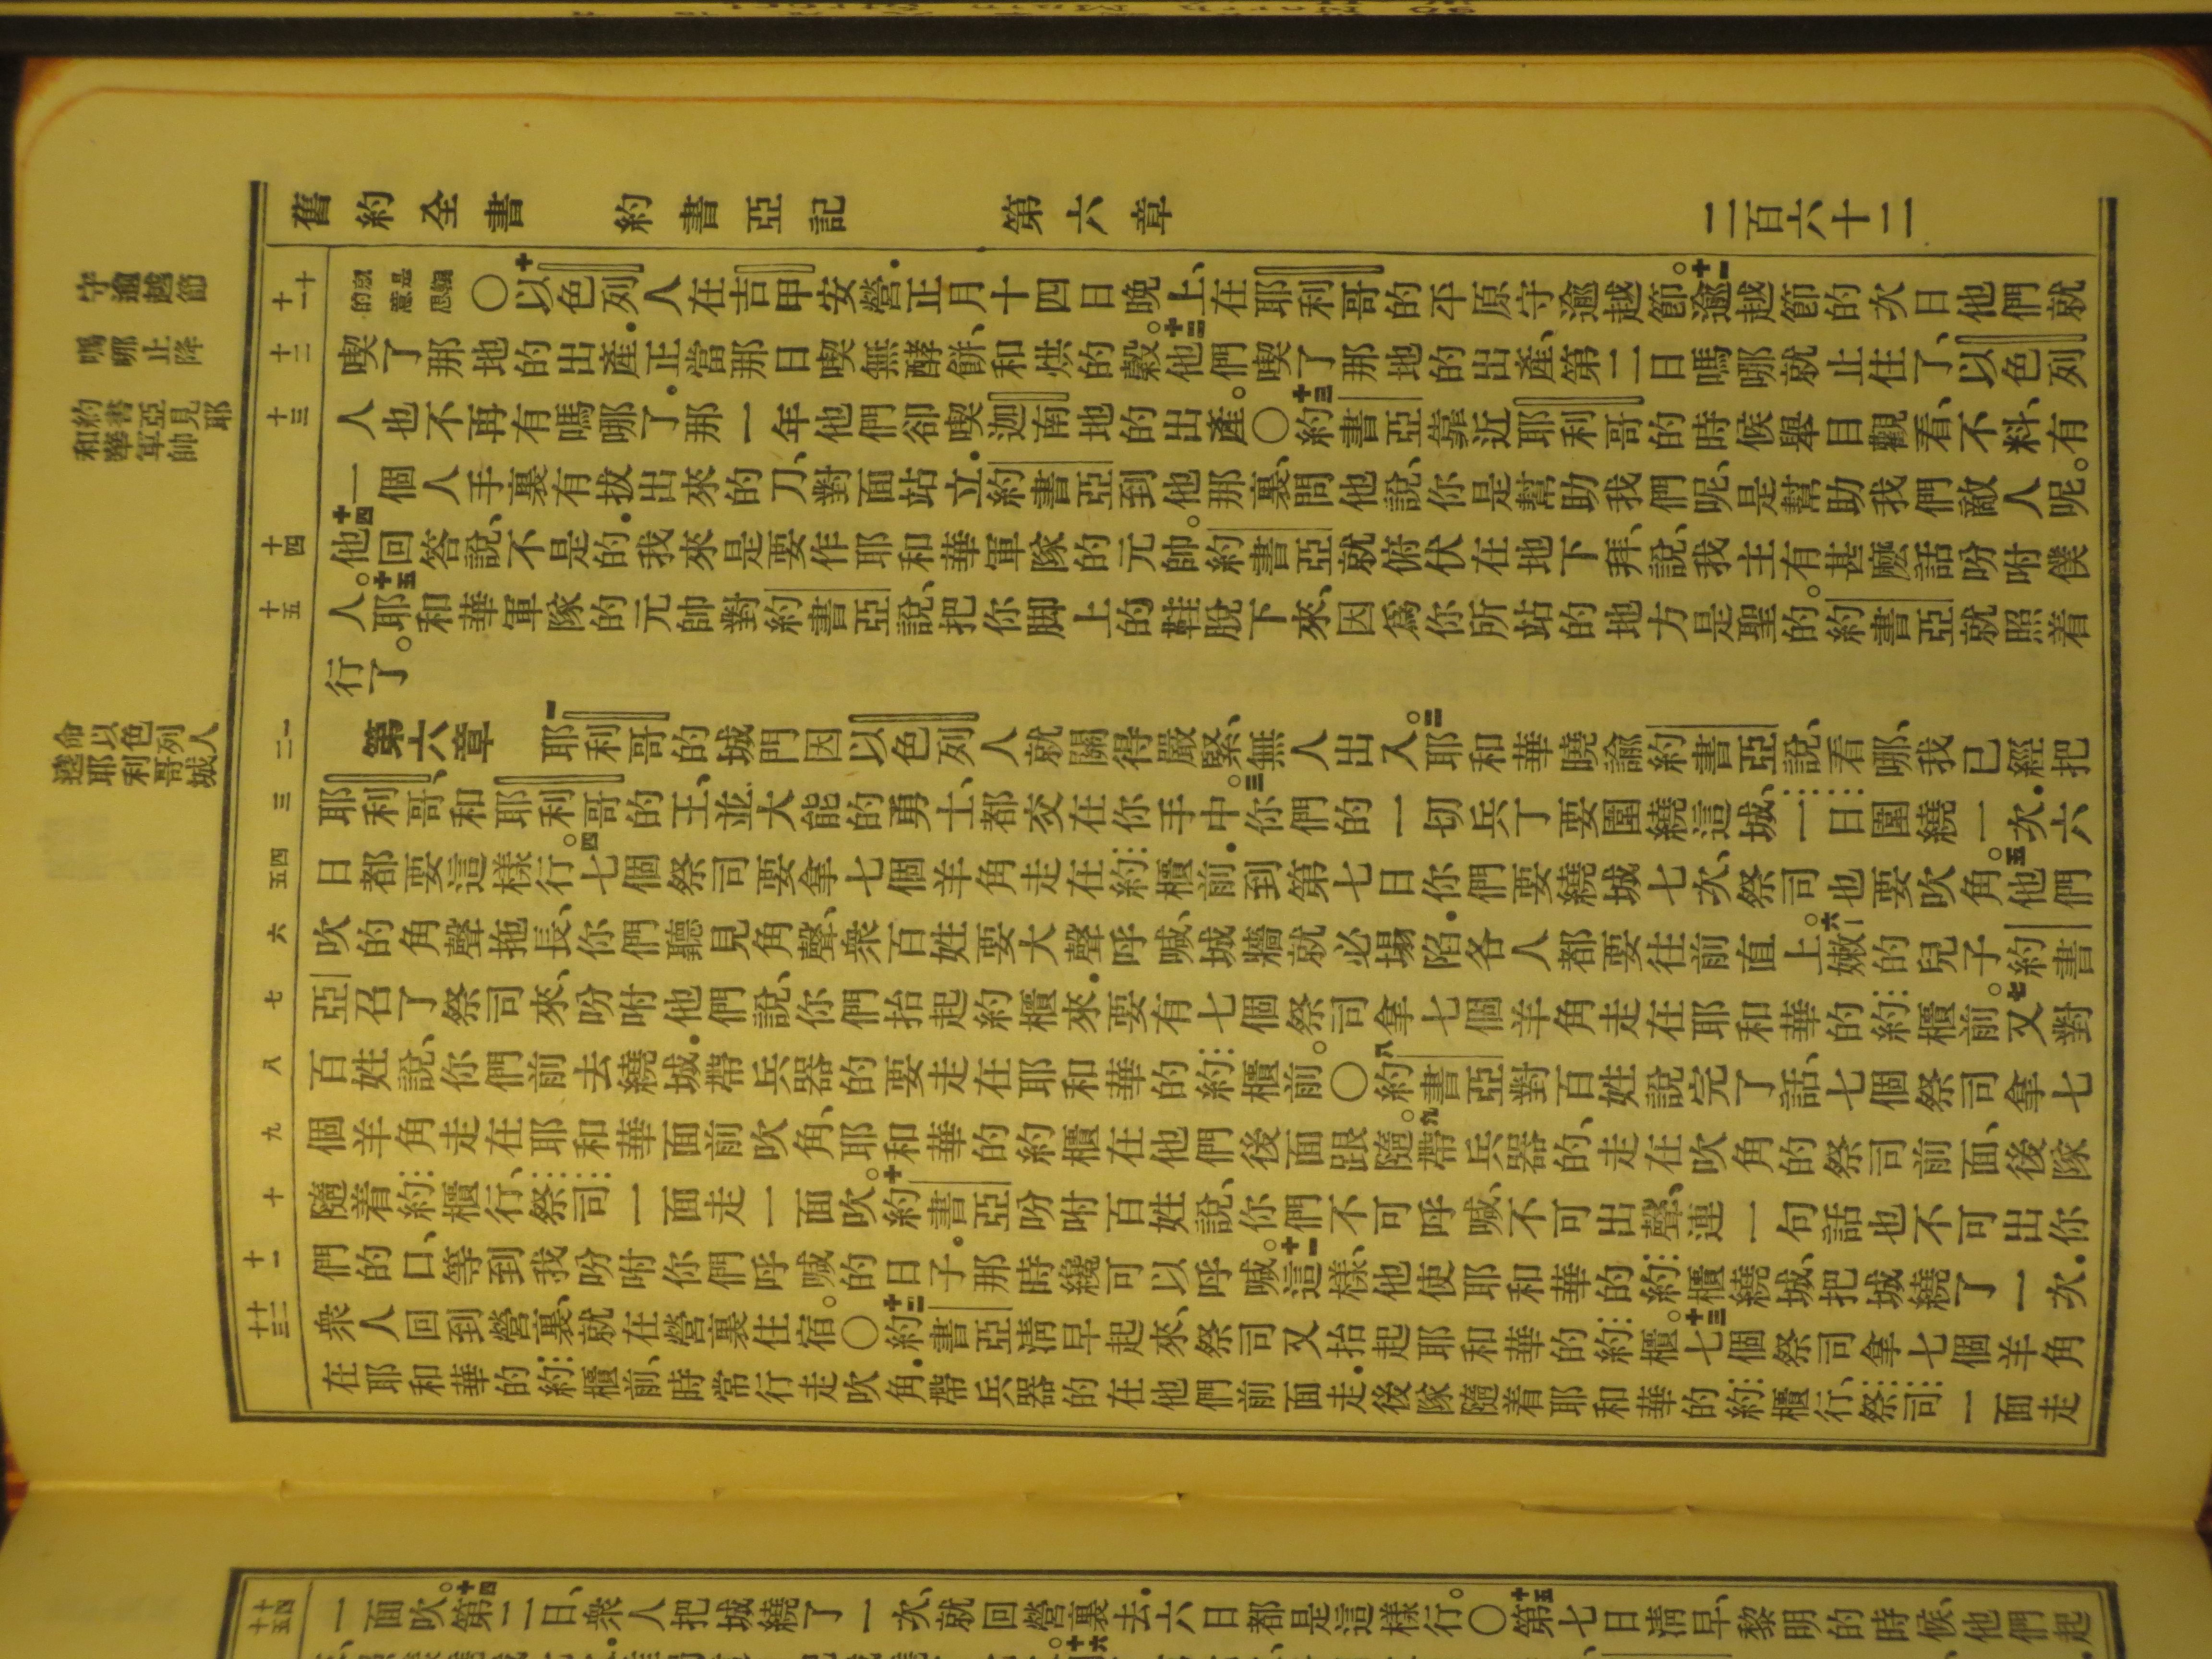 舊約全書 約書亞記 第六章 二百六十二
守逾越節
嗎哪止降
約書亞見耶
和華軍帥
命以色列人
遶耶利哥城
十 十一 十二 十三 十四 十五 一 二 三 四 五 六 七 八 九 十 十一 十二 十三
〇十以色列人在吉甲安營.正月十四日晚上、在耶利哥的平原守逾越節。十一逾越節的次日他們就
喫了那地的出產.正當那日喫無酵餅、和烘的穀。十二他們喫了那地的出產、第二日嗎哪就止住了、以色列
人也不再有嗎哪了.那一年他們卻喫迦南地的出產。〇十三約書亞靠近耶利哥的時候舉目觀看、不料、有
一個人手裏有拔出來的刀、對面站立.約書亞到他那裏、問他說、你是幫助我們呢、是幫助我們敵人呢。
十四他回答說、不是的.我來是要作耶和華軍隊的元帥。約書亞就俯伏在地下拜、說、我主有甚麼話吩咐僕
人。十五耶和華軍隊的元帥對約書亞說、把你脚上的鞋脫下來、因為你所站的地方是聖的。約書亞就照着
行了。
第六章 一耶利哥的城門因以色列人就關得嚴緊、無人出入。二耶和華曉諭約書亞說、看哪、我已經把
耶利哥、和耶利哥的王、並大能的勇士、都交在你手中。三你們的一切兵丁要圍繞這城、一日圍繞一次.六
日都要這樣行。四七個祭司要拿七個羊角走在約櫃前.到第七日你們要繞城七次、祭司也要吹角。五他們
吹的角聲拖長、你們聽見角聲、衆百姓要大聲呼喊、城牆就必塌陷.各人都要往前直上。六嫩的兒子約書
亞召了祭司來、吩咐他們說、你們抬起約櫃來.要有七個祭司拿七個羊角走在耶和華的約櫃前。七又對
百姓說、你們前去繞城.帶兵器的要走在耶和華的約櫃前。〇八約書亞對百姓說完了話、七個祭司拿七
個羊角走在耶和華面前吹角、耶和華的約櫃在他們後面跟隨。九帶兵器的、走在吹角的祭司前面、後隊
隨着約櫃行、祭司一面走一面吹。十約書亞吩咐百姓說、你們不可呼喊、不可出聲、連一句話也不可出你
們的口、等到我吩咐你們呼喊的日子.那時纔可以呼喊。十一這樣、他使耶和華的約櫃繞城、把城繞了一次.
衆人回到營裏、就在營裏住宿。〇十二約書亞清早起來、祭司又抬起耶和華的約櫃。十三七個祭司拿七個羊角
在耶和華的約櫃前、時常行走吹角.帶兵器的在他們前面走.後隊隨着耶和華的約櫃行、祭司一面走
十四 十五
一面吹。十四第二日、衆人把城繞了一次、就回營裏去.六日都是這樣行。〇十五第七日清早、黎明的時候、他們起